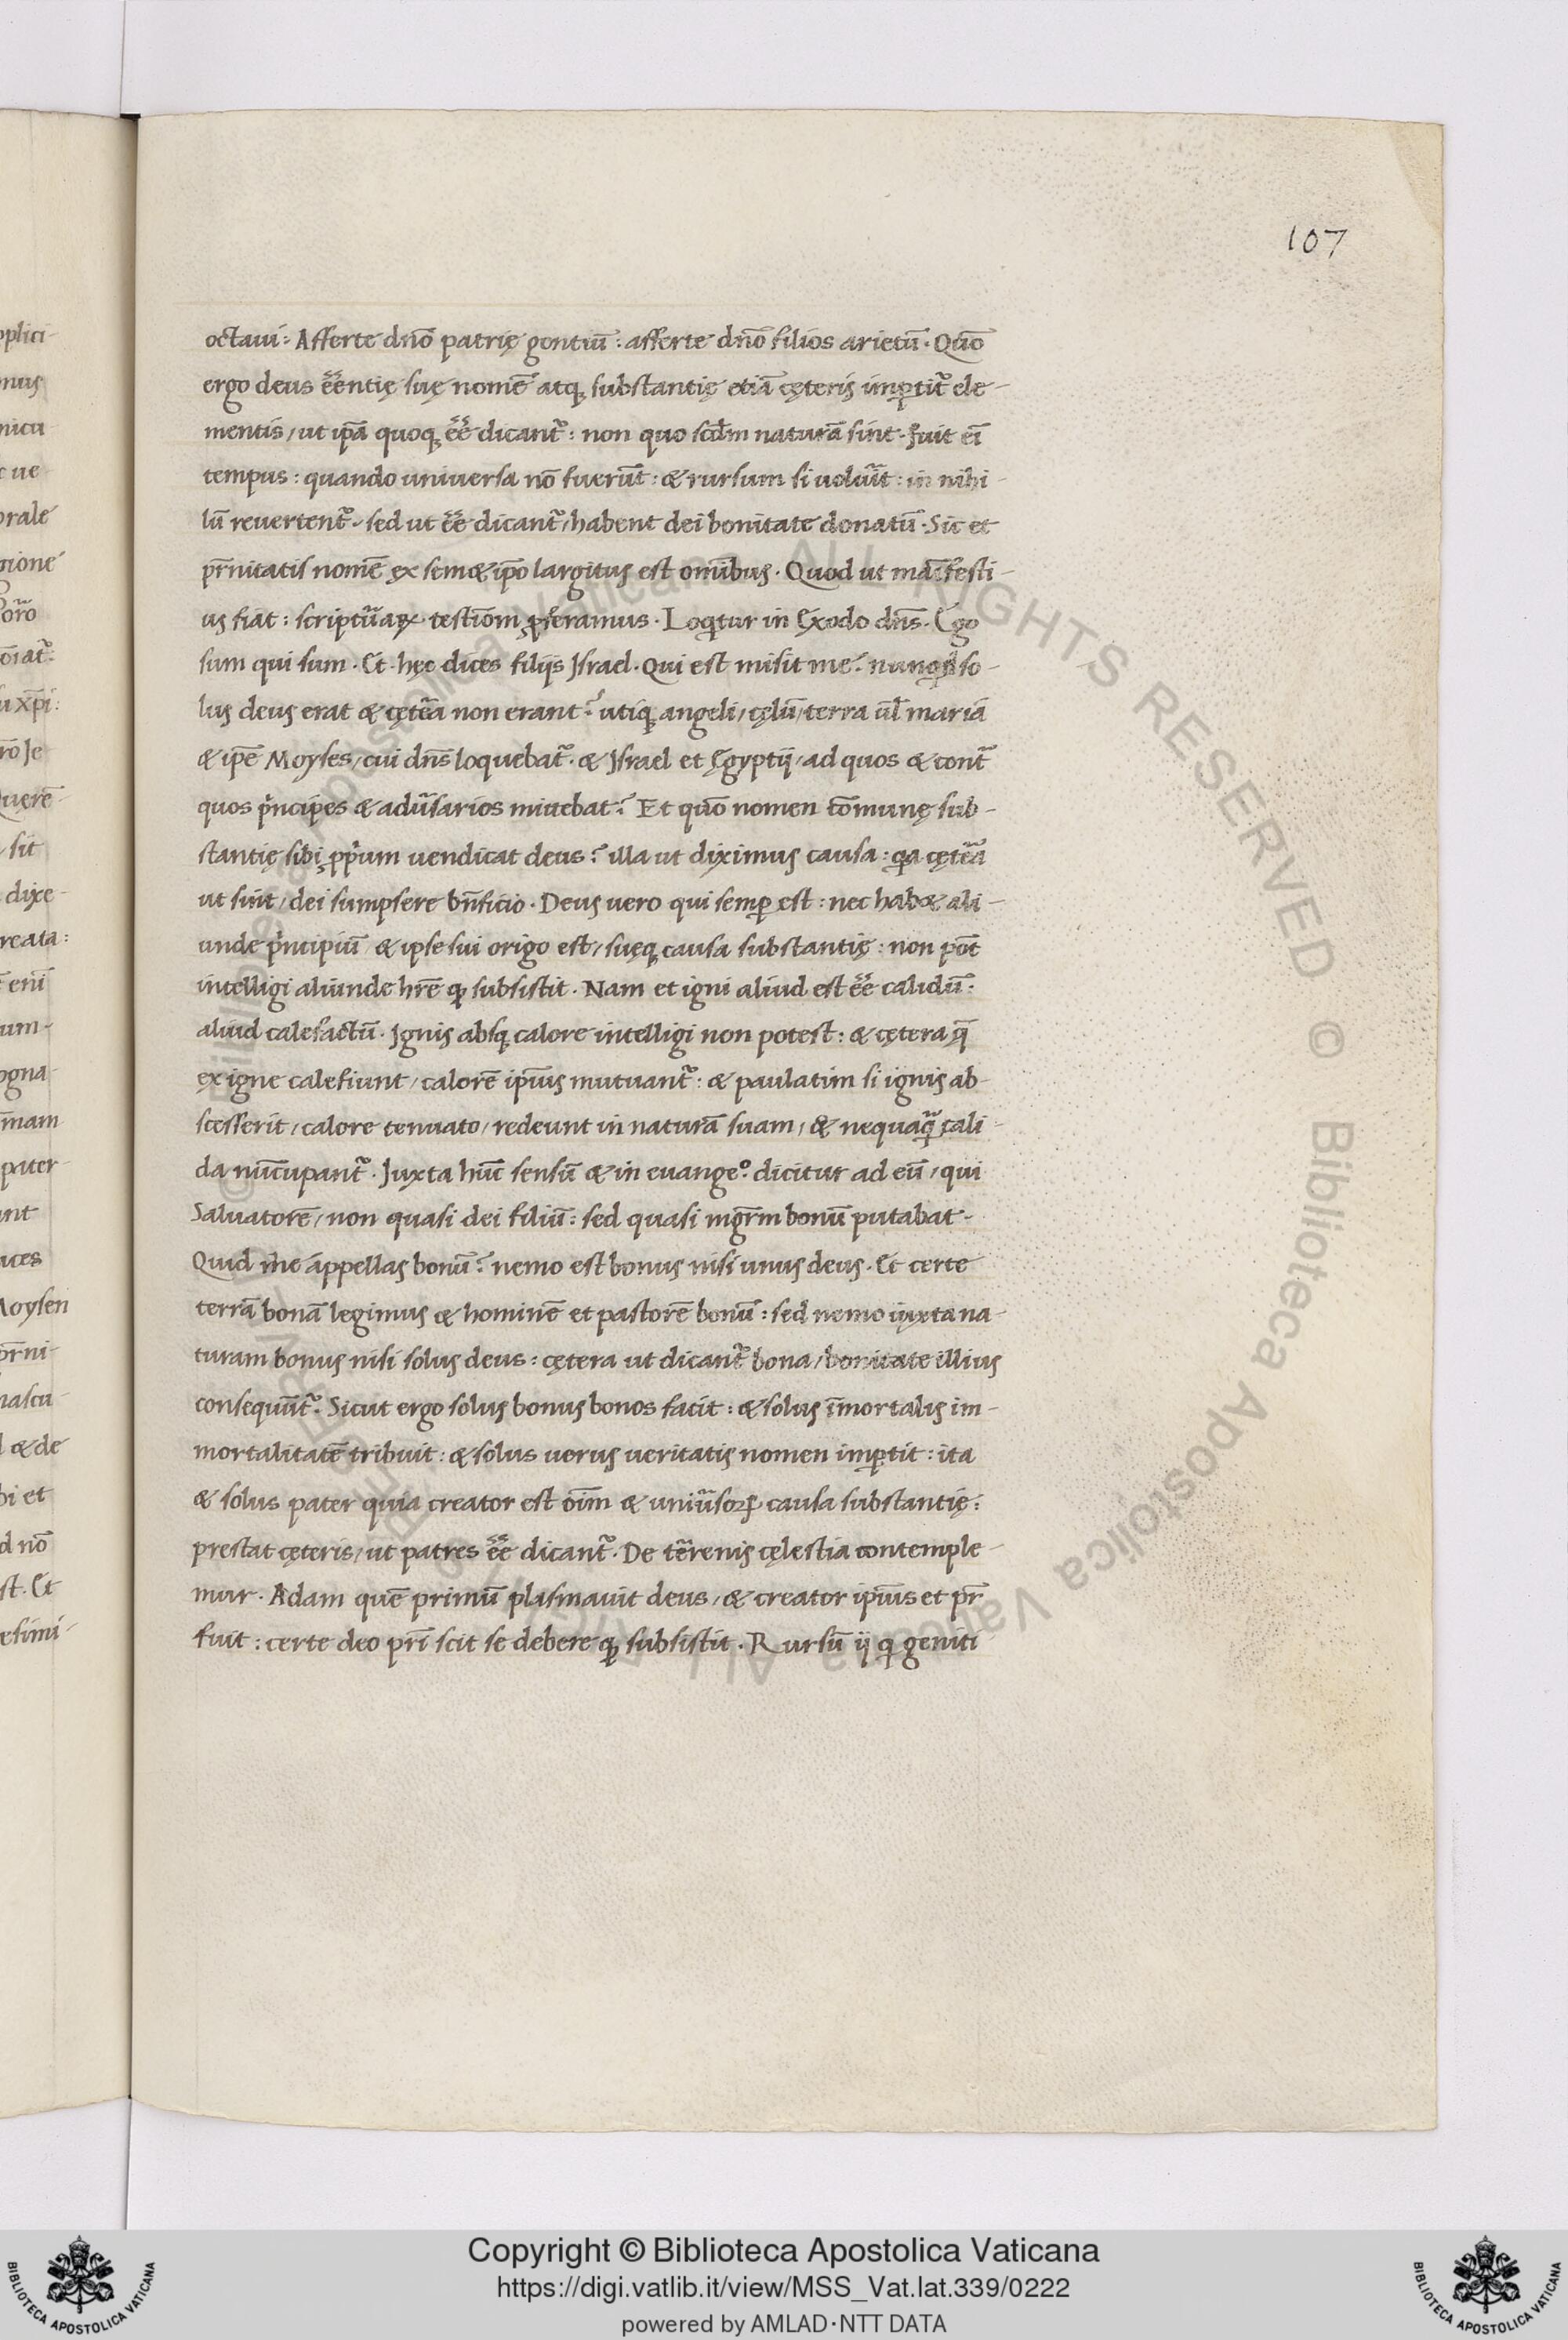 107
octaui: Afferte dnō patrię gentiū: afferte dnō filios arietū. Quō
ergo deus eēntię suę nomē atq; substantię etiā cęteris imꝑtit᷑ ele-
mentis, ut ipā quoq; eē dicant᷑: non quo scdm̄ naturā sint. fuit ei̅
tempus: quando universa nō fuerūt: & rursum si uoluīt: in nihi-
lū revertent᷑. sed ut eē dicant᷑, habent dei bonitate donatū. Sic et
pr̄nitatis nomē ex sem&ipo largitus est om̄ibus. Quod ut māifesti-
us fiat: scriptūaꝝ testiom̄ ꝓferamus. Loqⁱtur in Exodo dn̄s. Ego
sum qui sum. Et hęc dices filijs Israel. Qui est misit me. nunqⁱd so-
lus deus erat & cętēa non erant? utiqꝫ angeli, cęlū, terra ūl maria
& ipē Moyses, cui dn̄s loquebat᷑. & Israel et Ęgyptij, ad quos & cont᷑
quos pⁱncipes & adūsarios mittebat? Et quō nomen cōmunę sub-
stantię sibi ꝓpⁱum uendicat deus? illa ut diximus causa: qa cętēa
ut sint, dei sumpsere bn̄ficio. Deus uero qui semꝑ est: nec hab& ali-
unde pⁱncipiū & ipse sui origo est, suęq; causa substantię: non pōt
intelligi aliunde hr̄e ꝙ subsistit. Nam et igni aliud est eē calidū:
aliud calefactū. Ignis absq; calore intelligi non potest: & cętera q̄
ex igne calefiunt, calorē ipīus mutuant᷑: & paulatim si ignis ab-
scesserit, calore tenuato, redeunt in naturā suam, & nequaqᷓ cali-
da nūcupant᷑. Juxta hūc sensū & in euangeᵒ. dicitur ad eū, qui
Salvatorē, non quasi dei filiū: sed quasi mgr̄m bonū putabat.
Quid me appellas bonū? nemo est bonus nisi unus deus. Et certe
terrā bonā legimus & hominē et pastorē bonū: sed nemo iuxta na-
turam bonus nisi solus deus: cętera ut dicant᷑ bona, bonitate illius
consequūt᷑. Sicut ergo solus bonus bonos facit: & solus īmortalis im-
mortalitatē tribuit: & solus uerus ueritatis nomen imꝑtit: ita
& solus pater quia creator est oīm & uniūsoꝝ causa substantię:
prestat cęteris, ut patres eē dicant᷑. De tēr̄enis cęlestia contemple-
mur. Adam quē primū plasmauit deus, & creator ipīus et pr̄
fuit: certe deo pr̄i scit se debere ꝙ subsistit. Rursū ij qⁱ geniti
© Biblioteca Apostolica Vaticana ALL RIGHTS RESERVED
Copyright © Biblioteca Apostolica Vaticana
https://digi.vatlib.it/view/MSS_Vat.lat.339/0222
powered by AMLAD·NTT DATA
BIBLIOTECA APOSTOLICA VATICANA
BIBLIOTECA APOSTOLICA VATICANA